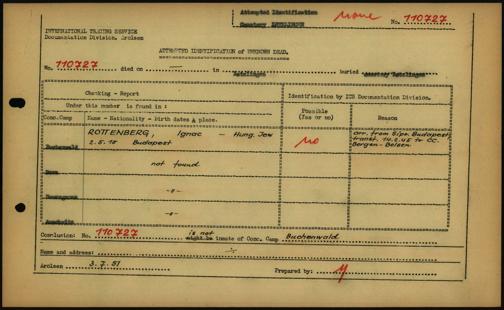 Attempted Identification
Cemetery
None
No. 110727
INTERNATIONAL TRACING SERVICE
Documentation Division, Arolsen
ATTEMPTED IDENTIFICATION of UNKNOWN DEAD.
No. 110727 died on — in buried
Checking - Report
Identification by ITS Documentation Division.
Under this number is found in:
Possible
(Yes or no)
Reason
Conc.Camp
Name - Nationality - Birth dates & place.
ROTTENBERG, Ignac - Hung. Jew
2.5. Budapest
Buchenwald
No
arr. from Sipo Budapest
transf. 14.2.45 to CC.
Bergen-Belsen
not found
-"-
-"-
Auschwitz
Conclusion: No. 110727 is not
might be inmate of Conc. Camp Buchenwald
Name and address:
Arolsen 3.7.51
Prepared by: